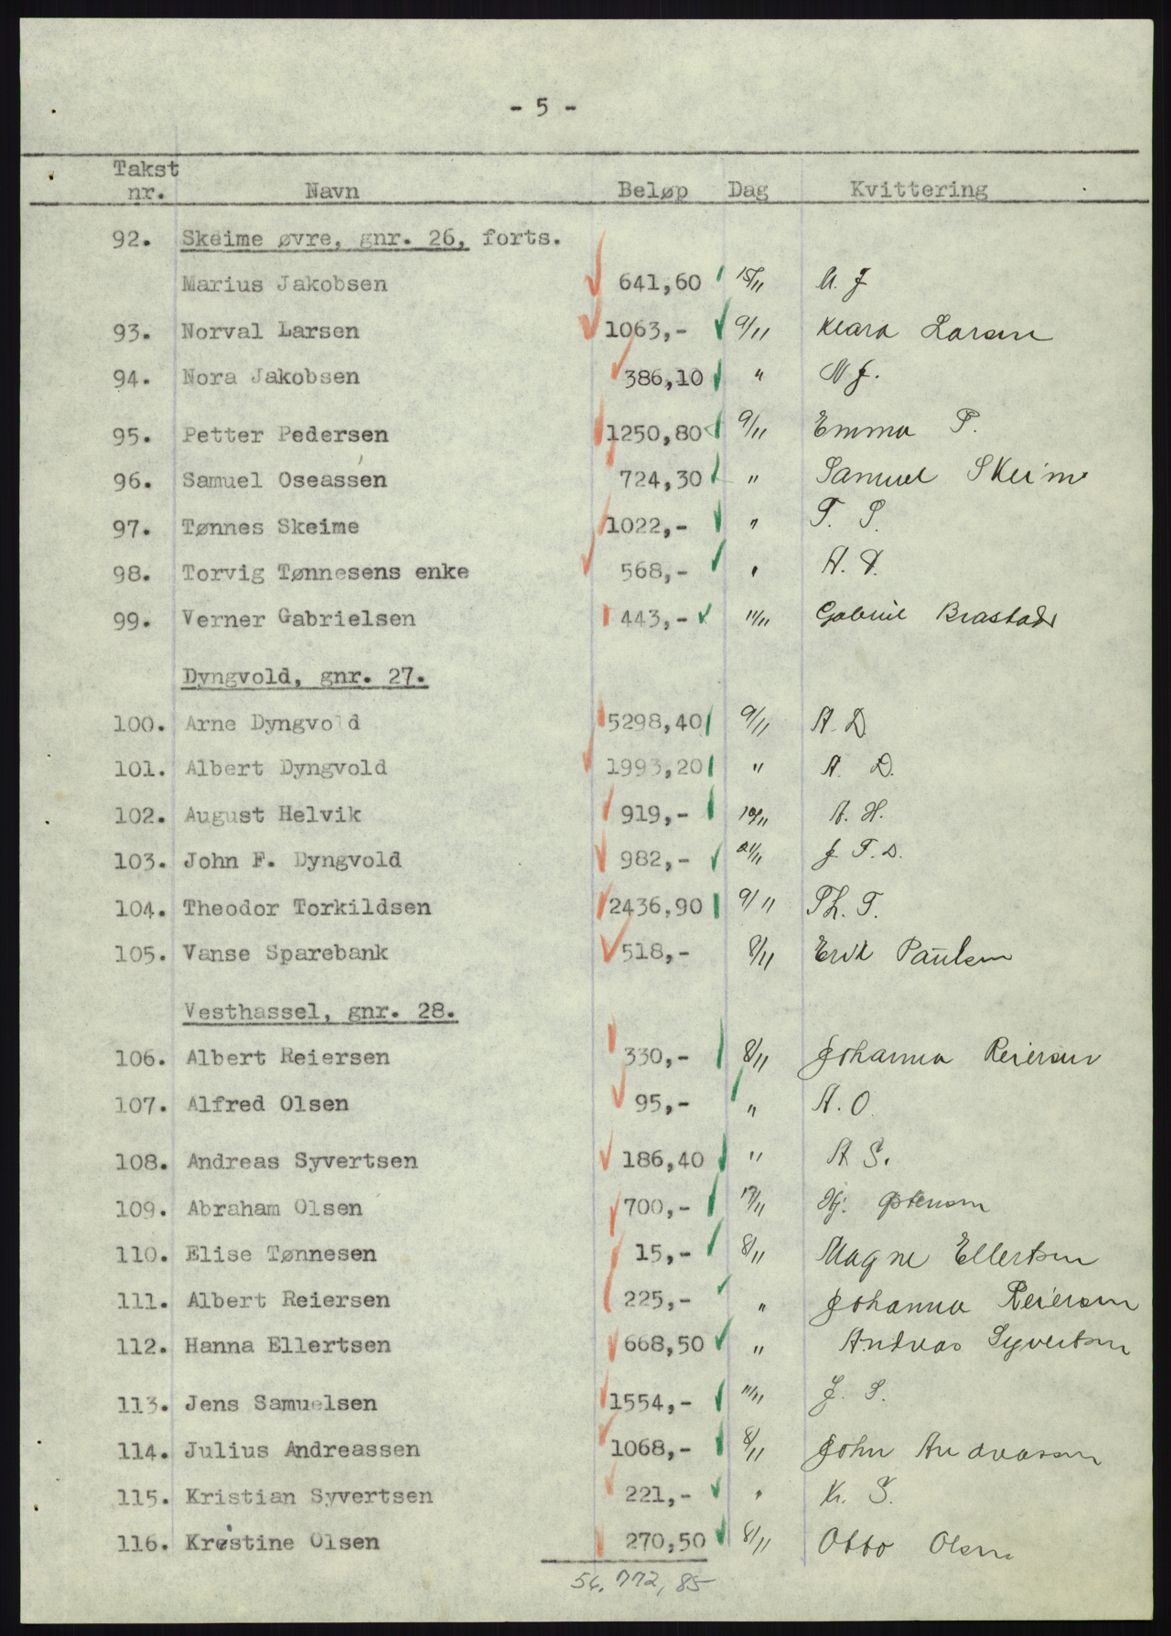 - 5 -
Takst
nr. Navn Beløp Dag Kvittering
92. Skeime øvre, gnr. 26, forts.
Marius Jakobsen 641,60 15/11 M. J
93. Norval Larsen 1063,- 9/11 Klara Larsen
94. Nora Jakobsen 386,10 " N J.
95. Petter Pedersen 1250,80 9/11 Emma P.
96. Samuel Oseassen 724,30 " Samuel Skeime
97. Tønnes Skeime 1022,- " T. S.
98. Torvig Tønnesens enke 568,- "
99. Verner Gabrielsen 443,- 11/11 Gabriel Brastad
Dyngvold, gnr. 27.
100. Arne Dyngvold 5298,40 9/11 A. D
101. Albert Dyngvold 1993,20 " A. D.
102. August Helvik 919,- 10/11 A. H.
103. John F. Dyngvold 982,- 21/11 J F. D.
104. Theodor Torkildsen 2436,90 9/11 Th. T.
105. Vanse Sparebank 518,- 8/11 Erik Paulsen
Vesthassel, gnr. 28.
106. Albert Reiersen 330,- 8/11 Johanna Reiersen
107. Alfred Olsen 95,- " A. O.
108. Andreas Syvertsen 186,40 " A S.
109. Abraham Olsen 700,- 17/11
110. Elise Tønnesen 15,- 8/11 Magne Ellertsen
111. Albert Reiersen 225,- " Johanna Reiersen
112. Hanna Ellertsen 668,50 " Andreas Syvertsen
113. Jens Samuelsen 1554,- 11/11 J. S.
114. Julius Andreassen 1068,- 8/11 John Andreassen
115. Kristian Syvertsen 221,- " Kr. S.
116. Krøstine Olsen 270,50 8/11 Otto Olsen
56.772,85